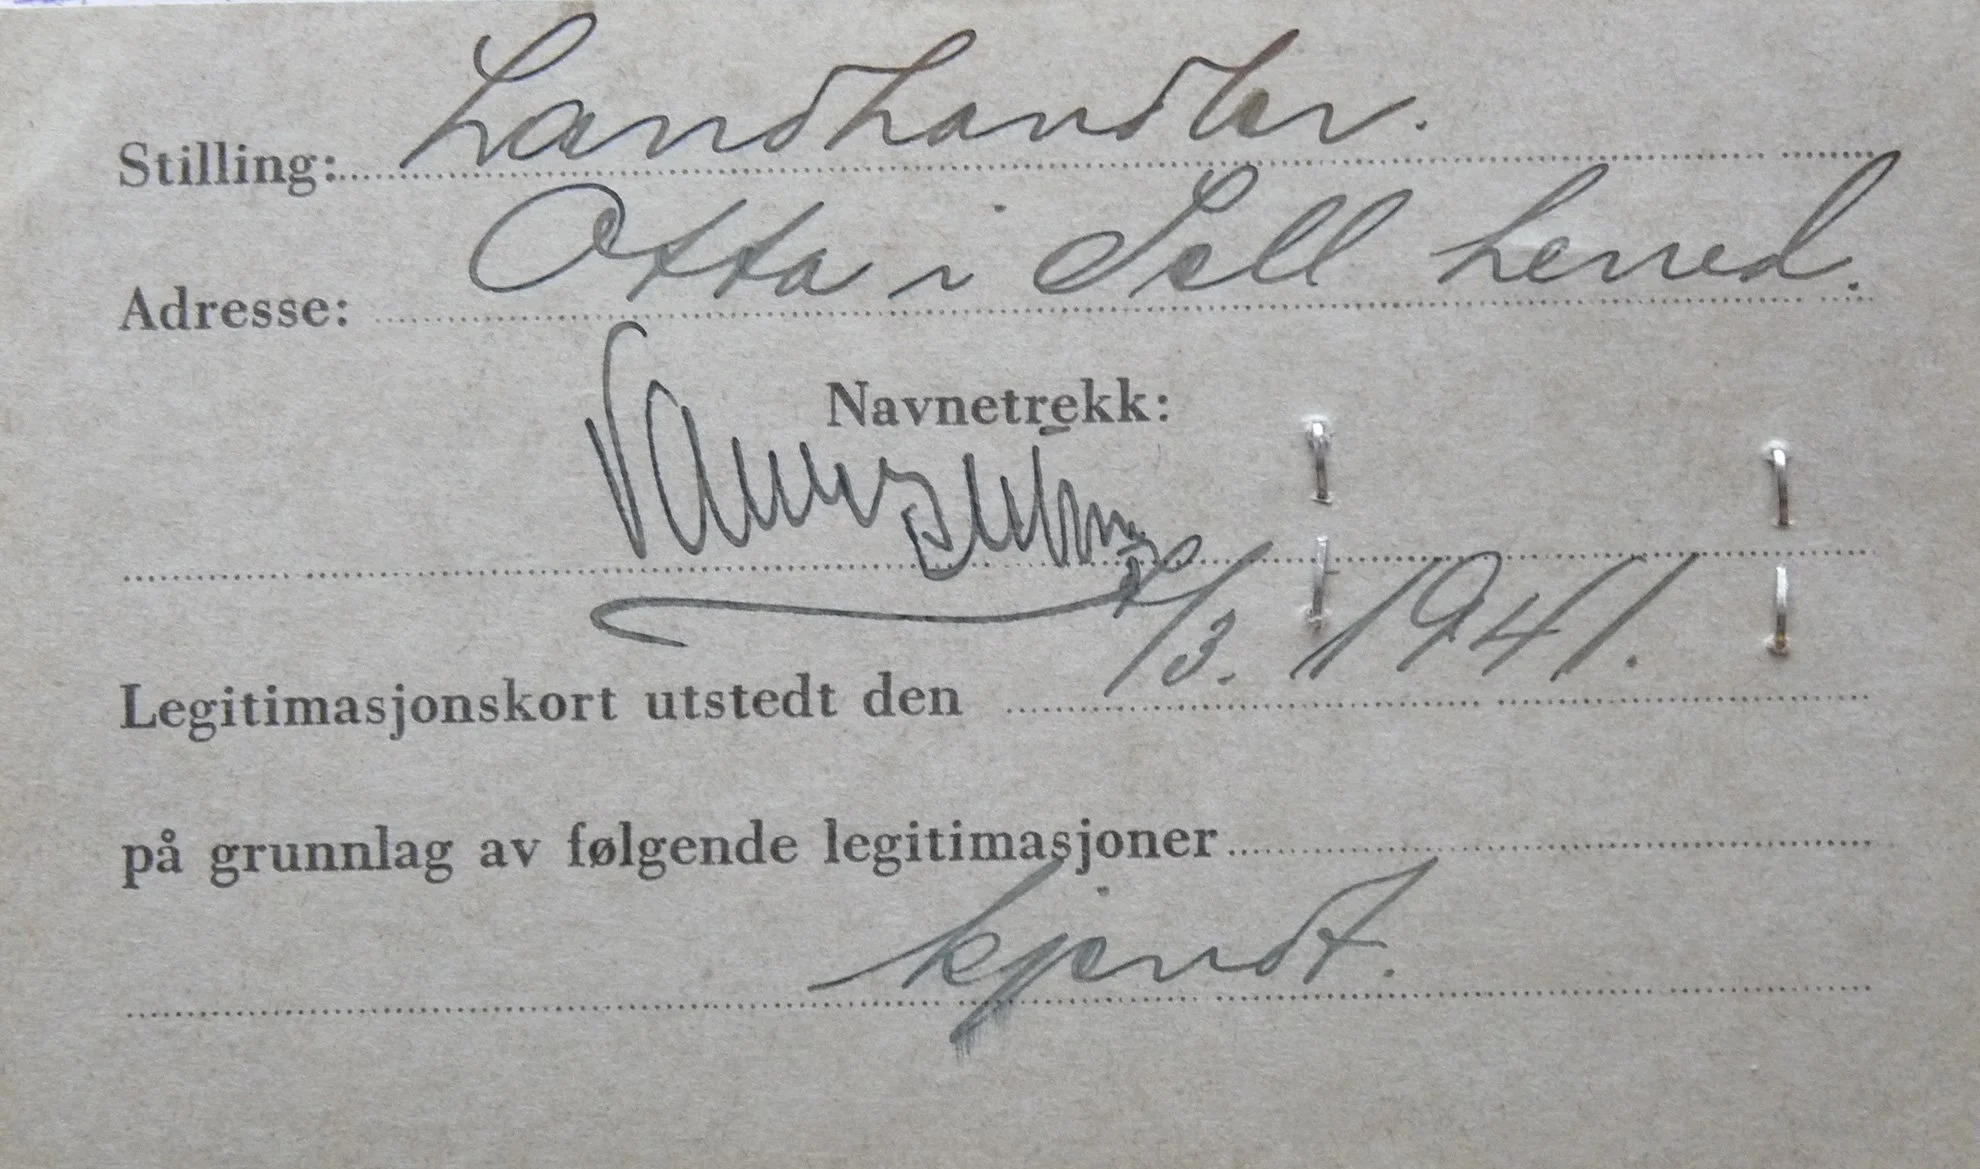 Stilling: Landhandler.
Adresse: Otta i Sell herred.
Navnetrekk:
Legitimasjonskort utstedt den /3. 1941.
på grunnlag av følgende legitimasjoner
kjendt.